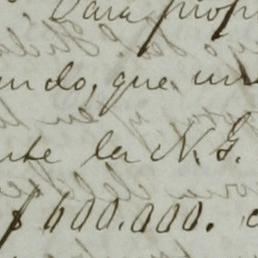 Para prop
ando, que un
nte la N. G.
$ 600.000.